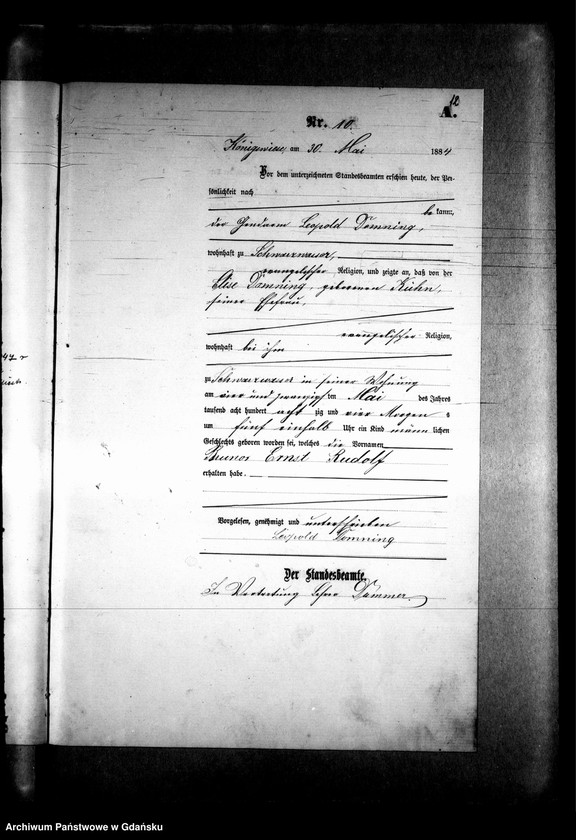 10
A.
Nr. 10.
Königswiese, am 30. Mai 1884
Vor dem unterzeichneten Standesbeamten erschien heute, der Per-
sönlichkeit nach
be kannt,
der Gendarm Leopold Domning,
wohnhaft zu Schwarzwasser,
evangelischer Religion, und zeigte an, daß von der
Elise Domning, geborenen Kuhn,
seiner Ehefrau,
evangelischer Religion,
wohnhaft bei ihm
zu Schwarzwasser in seiner Wohnung
am vier und zwanzigsten Mai des Jahres
tausend acht hundert acht zig und vier Morgens
um fünf einhalb Uhr ein Kind männ lichen
Geschlechts geboren worden sei, welches die Vornamen
Bruno Ernst Rudolf
erhalten habe.
Vorgelesen, genehmigt und unterschrieben
Leopold Domning
Der Standesbeamte.
In Vertretung Dammer.
Archiwum Państwowe w Gdańsku